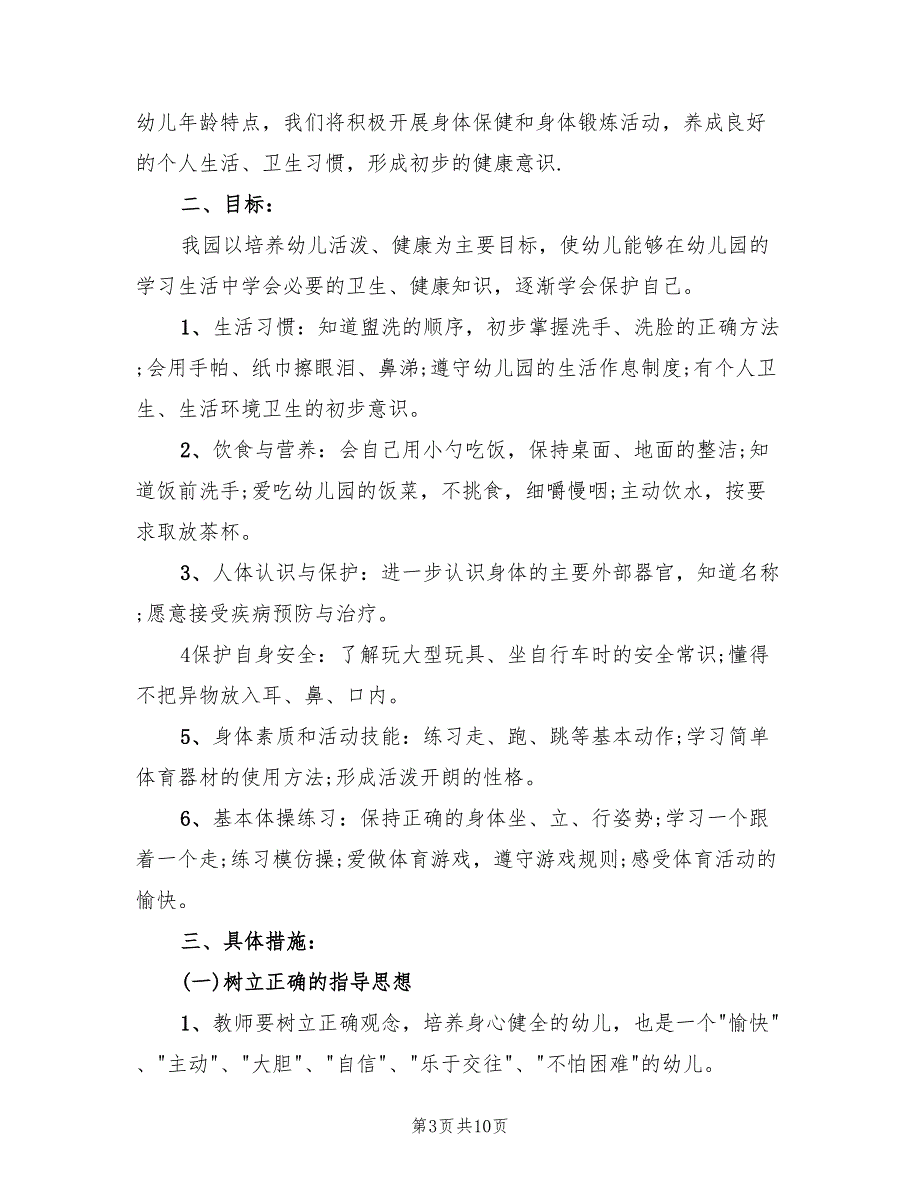 幼儿年龄特点，我们将积极开展身体保健和身体锻炼活动，养成良好
的个人生活、卫生习惯，形成初步的健康意识.
二、目标：
我园以培养幼儿活泼、健康为主要目标，使幼儿能够在幼儿园的
学习生活中学会必要的卫生、健康知识，逐渐学会保护自己。
1、生活习惯：知道盥洗的顺序，初步掌握洗手、洗脸的正确方法
;会用手帕、纸巾擦眼泪、鼻涕;遵守幼儿园的生活作息制度;有个人卫
生、生活环境卫生的初步意识。
2、饮食与营养：会自己用小勺吃饭，保持桌面、地面的整洁;知
道饭前洗手;爱吃幼儿园的饭菜，不挑食，细嚼慢咽;主动饮水，按要
求取放茶杯。
3、人体认识与保护：进一步认识身体的主要外部器官，知道名称
;愿意接受疾病预防与治疗。
4保护自身安全：了解玩大型玩具、坐自行车时的安全常识;懂得
不把异物放入耳、鼻、口内。
5、身体素质和活动技能：练习走、跑、跳等基本动作;学习简单
体育器材的使用方法;形成活泼开朗的性格。
6、基本体操练习：保持正确的身体坐、立、行姿势;学习一个跟
着一个走;练习模仿操;爱做体育游戏，遵守游戏规则;感受体育活动的
愉快。
三、具体措施：
(一)树立正确的指导思想
1、教师要树立正确观念，培养身心健全的幼儿，也是一个"愉快"
、"主动"、"大胆"、"自信"、"乐于交往"、"不怕困难"的幼儿。
第3页共10页